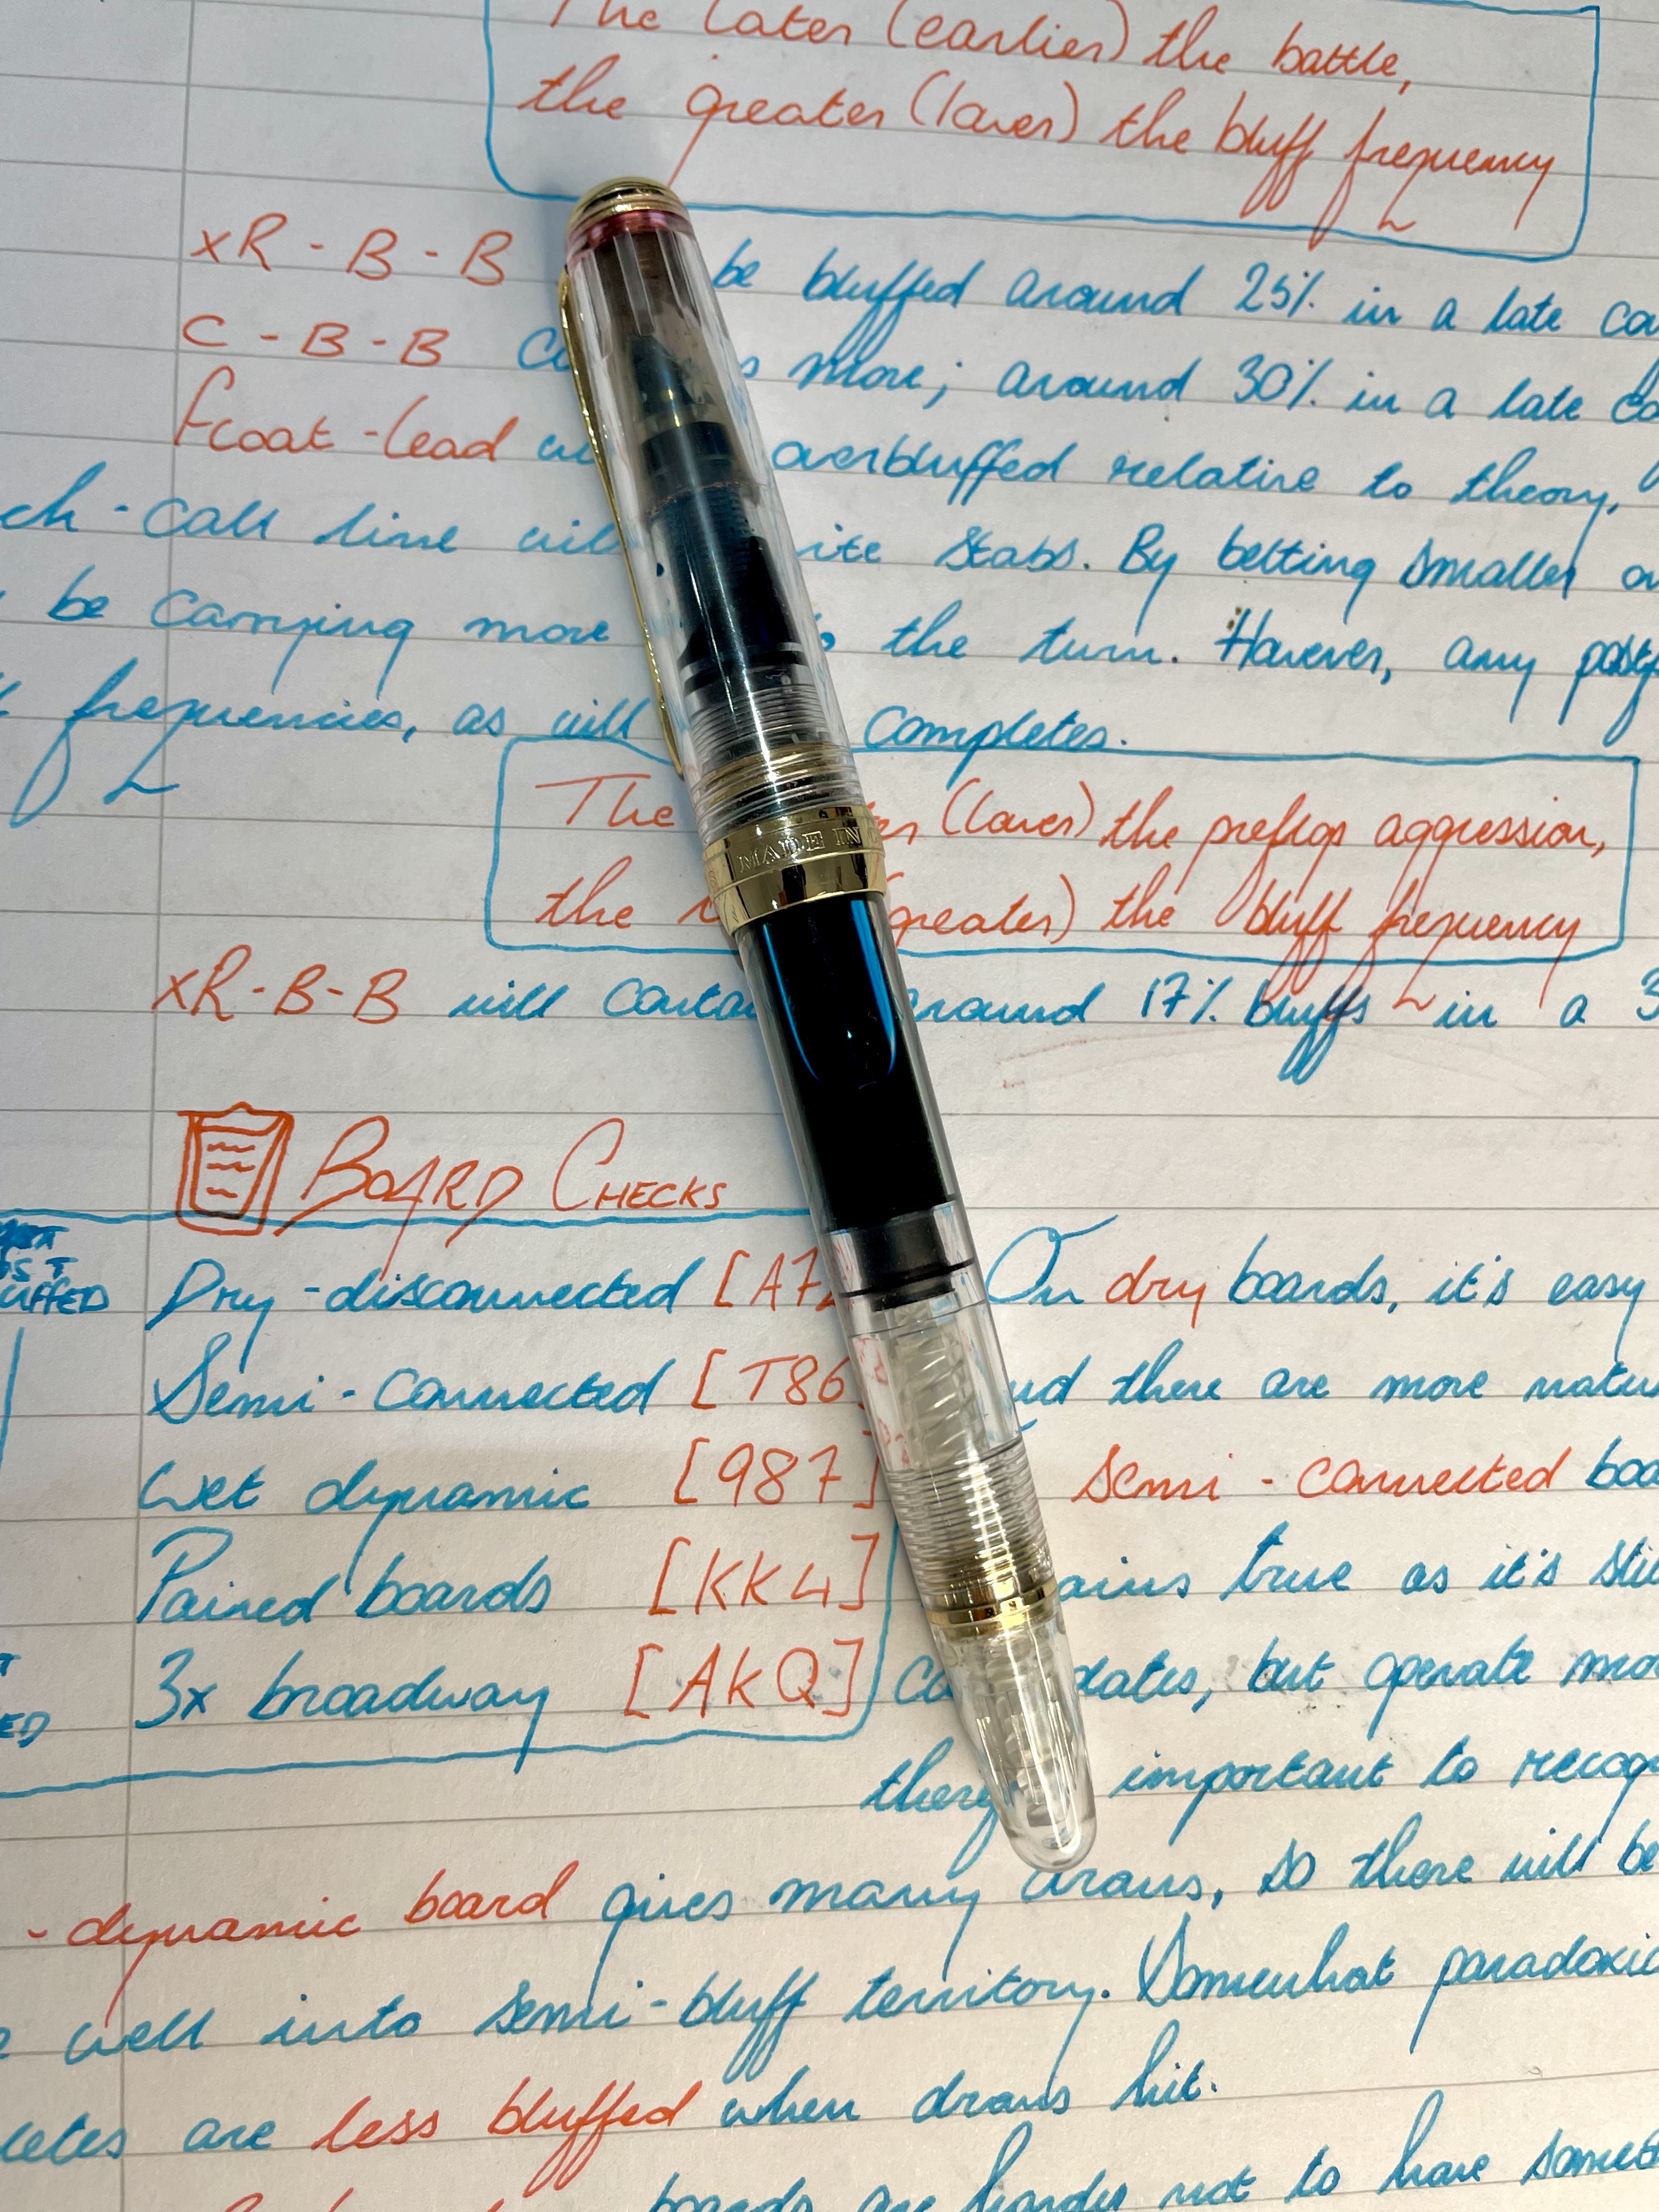 The later (earlier) the battle,
the greater (lower) the bluff frequency
xR - B - B be bluffed around 25% in a late
C - B - B more; around 30% in a late
float-lead overbluffed relative to theory,
call line stabs. By betting smaller
be carrying more the turn. However, any
frequencies, as will completes.
The (lower) the preflop aggression,
MADE IN
the (greater) the bluff frequency
xR-B-B will around 17% bluffs in a 3
BOARD CHECKS
Dry-disconnected [A7 On dry boards, it's easy
Semi-connected [T86 there are more
Wet dynamic [987] semi-connected
Paired boards [KK4] true as it's
3x broadway [AKQ] but operate
important to
- dynamic board gives many draws, so there will be
well into semi-bluff territory. Somewhat
are less bluffed when draws hit.
boards are harder not to have